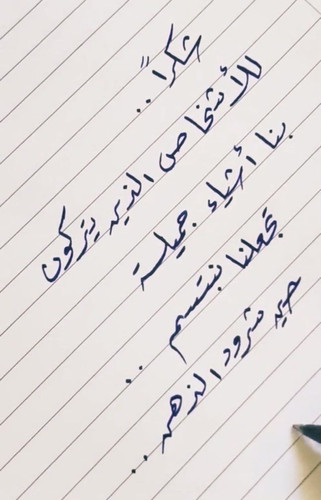 شكراً ..
للأشخاص الذين يتركون
بنا أشياء جميلة
تجعلنا نبتسم ..
حين شرود الذهن ..